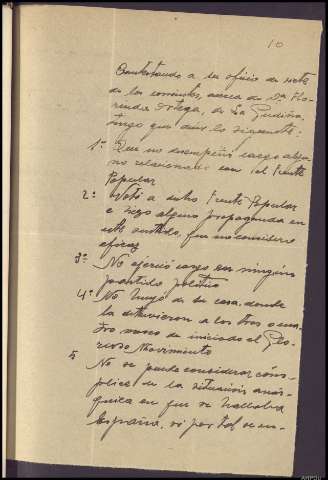 10
Contestando a su oficio de siete
de los corrientes, acerca de Dª Flo-
rinda Ortega, de La Gudiña,
tengo que decir lo siguiente:
1º Que no desempeñó cargo algu-
no relacionado con el Frente
Popular
2º Votó a dicho Frente Popular
e hizo alguna propaganda en
este sentido, que no considero
eficaz
3º No ejerció cargo en ningún
partido político
4º No huyó de su casa, donde
la detuvieron a los tres o cua-
tro meses de iniciado el Glo-
rioso Movimiento
5 No se puede considerar cóm-
plice de la situación anár-
quica en que se hallaba
España, si por tal se en-